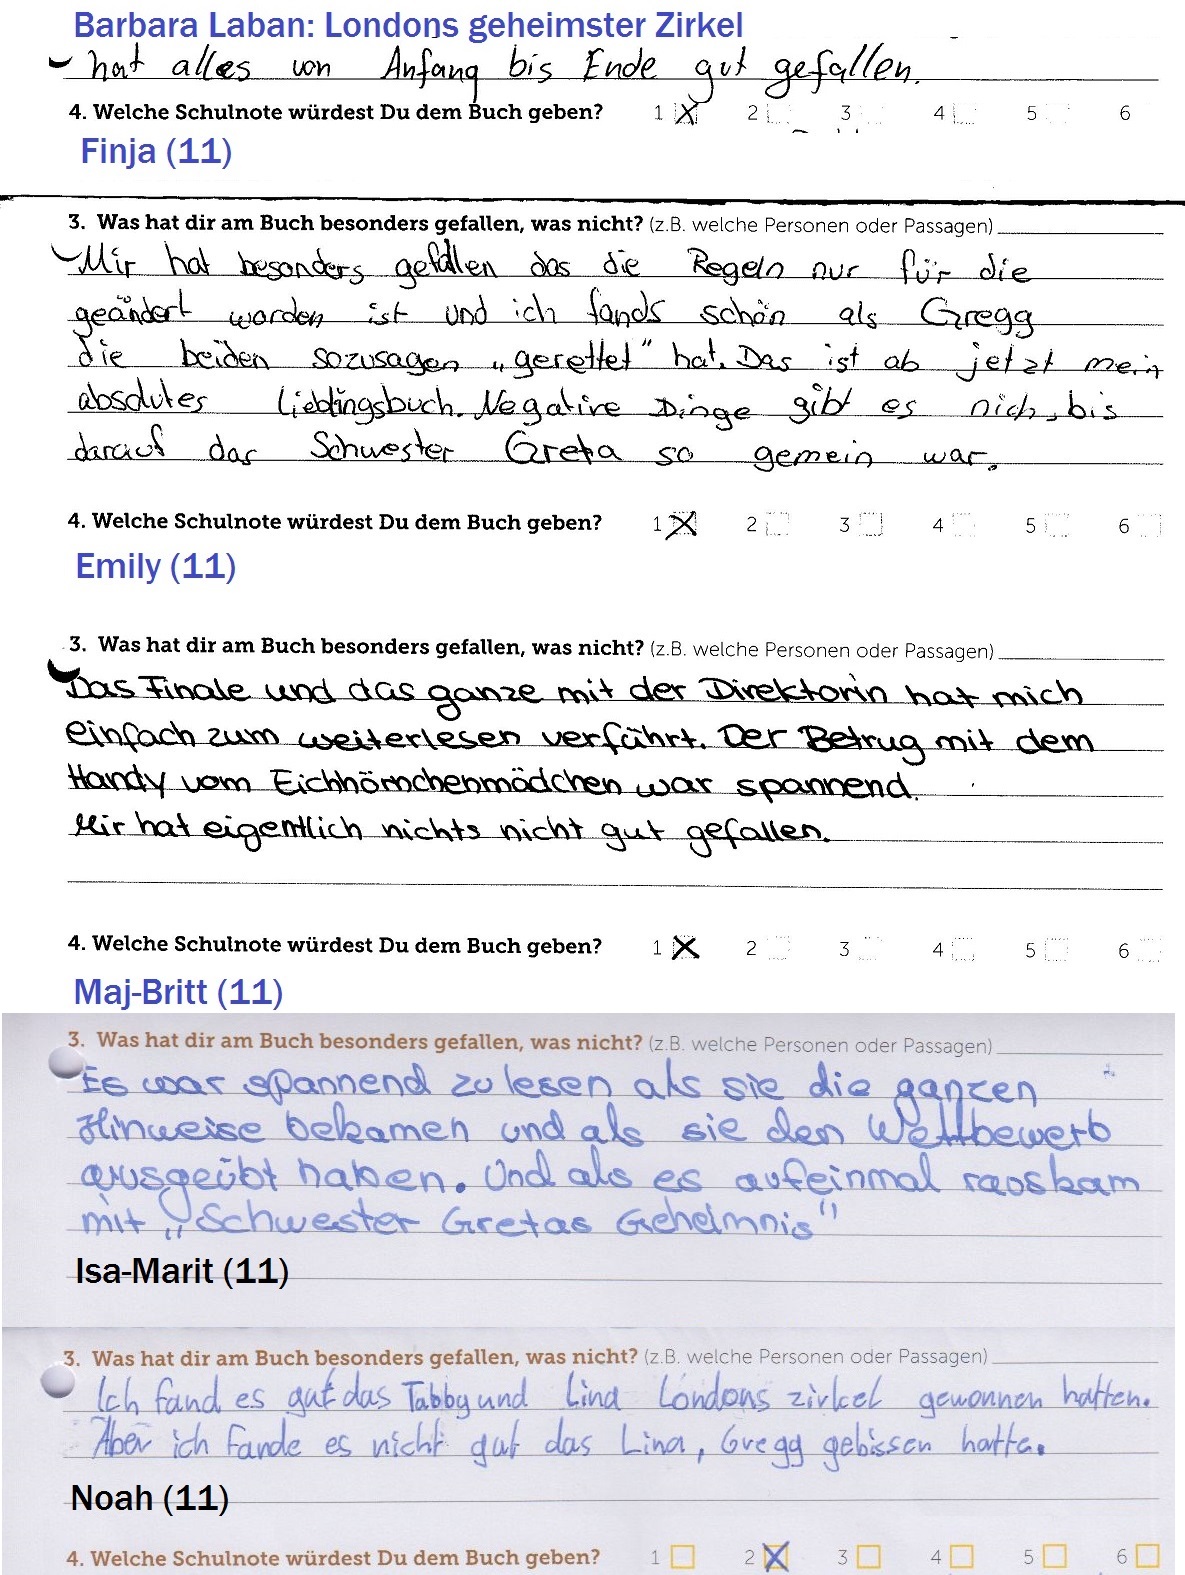 Barbara Laban: Londons geheimster Zirkel
hat alles von Anfang bis Ende gut gefallen.
4. Welche Schulnote würdest Du dem Buch geben? 1 2 3 4 5 6
Finja (11)
3. Was hat dir am Buch besonders gefallen, was nicht? (z.B. welche Personen oder Passagen)
Mir hat besonders gefallen das die Regeln nur für die
geändert worden ist und ich fands schön als Gregg
die beiden sozusagen „gerettet" hat. Das ist ab jetzt mein
absolutes Lieblingsbuch. Negative Dinge gibt es nich, bis
darauf das Schwester Greta so gemein war.
4. Welche Schulnote würdest Du dem Buch geben? 1 2 3 4 5 6
Emily (11)
3. Was hat dir am Buch besonders gefallen, was nicht? (z.B. welche Personen oder Passagen)
Das Finale und das ganze mit der Direktorin hat mich
einfach zum weiterlesen verführt. Der Betrug mit dem
Handy vom Eichhörnchenmädchen war spannend.
Mir hat eigentlich nichts nicht gut gefallen.
4. Welche Schulnote würdest Du dem Buch geben? 1 2 3 4 5 6
Maj-Britt (11)
3. Was hat dir am Buch besonders gefallen, was nicht? (z.B. welche Personen oder Passagen)
Es war spannend zu lesen als sie die ganzen
Hinweise bekamen und als sie den Wettbewerb
ausgeübt haben. Und als es aufeinmal rauskam
mit „Schwester Gretas Geheimnis"
Isa-Marit (11)
3. Was hat dir am Buch besonders gefallen, was nicht? (z.B. welche Personen oder Passagen)
Ich fand es gut das Tabby und Lina Londons zirkel gewonnen hatten.
Aber ich fande es nicht gut das Lina, Gregg gebissen hatte.
Noah (11)
4. Welche Schulnote würdest Du dem Buch geben? 1 2 3 4 5 6